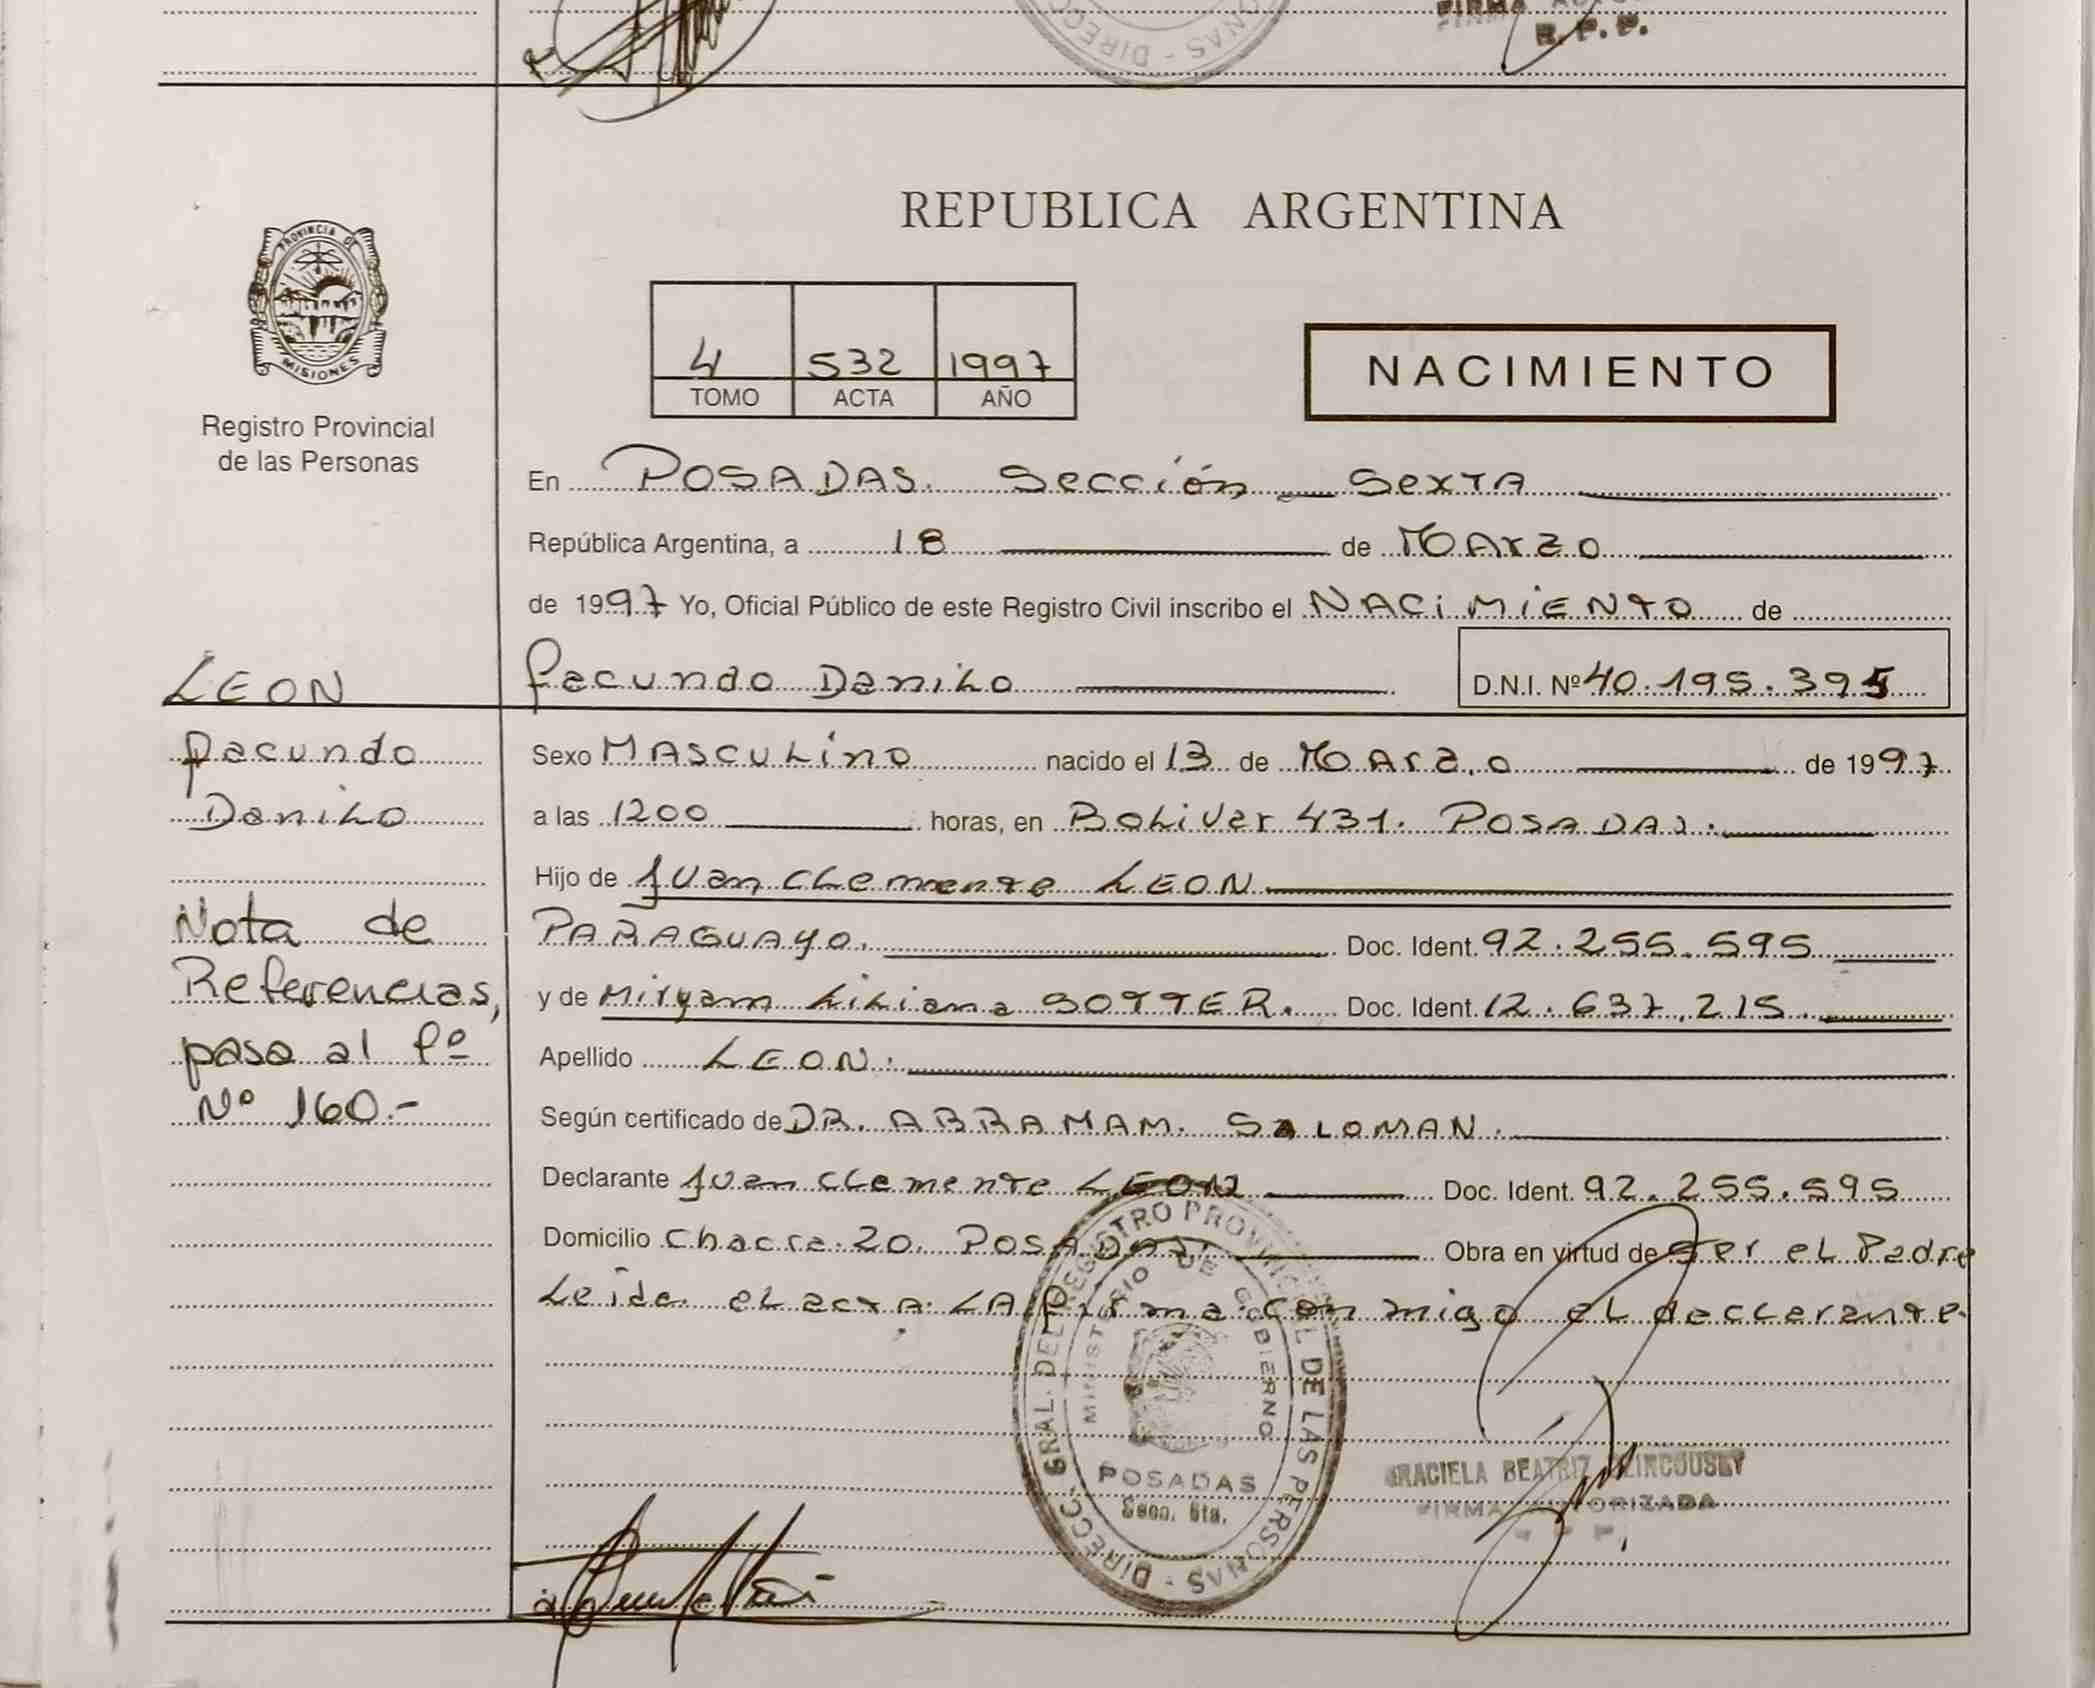 FIRMA
R. P. P.
PROVINCIA DE
MISIONES
Registro Provincial
de las Personas
REPUBLICA ARGENTINA
4 532 1997
TOMO ACTA AÑO
NACIMIENTO
En POSADAS. Sección Sexta
República Argentina, a 18 de Marzo
de 1997 Yo, Oficial Público de este Registro Civil inscribo el NACIMIENTO de
LEON
Facundo Danilo D.N.I. Nº 40.195.395
Facundo
Danilo
Sexo Masculino nacido el 13 de Marzo de 1997
a las 1200 horas, en Bolivar 431. POSADAS.
Hijo de Juan Clemente LEON
Nota de
Referencias,
pasa al Fº
Nº 160.-
PARAGUAYO. Doc. Ident. 92.255.595
y de Miryam Liliana SOTTER. Doc. Ident. 12.637.215.
Apellido LEON.
Según certificado de DR. ABRAMAM. SALOMAN.
Declarante Juan Clemente LEON Doc. Ident. 92.255.595
Domicilio Chacra 20. POSADAS. Obra en virtud de Ser el Padre
Leida el acta LA firma conmigo el declarante.
DIRECC. GRAL. DEL REGISTRO PROVINCIAL DE LAS PERSONAS
MINISTERIO DE GOBIERNO
POSADAS
Secc. 6ta.
GRACIELA BEATRIZ
FIRMA AUTORIZADA